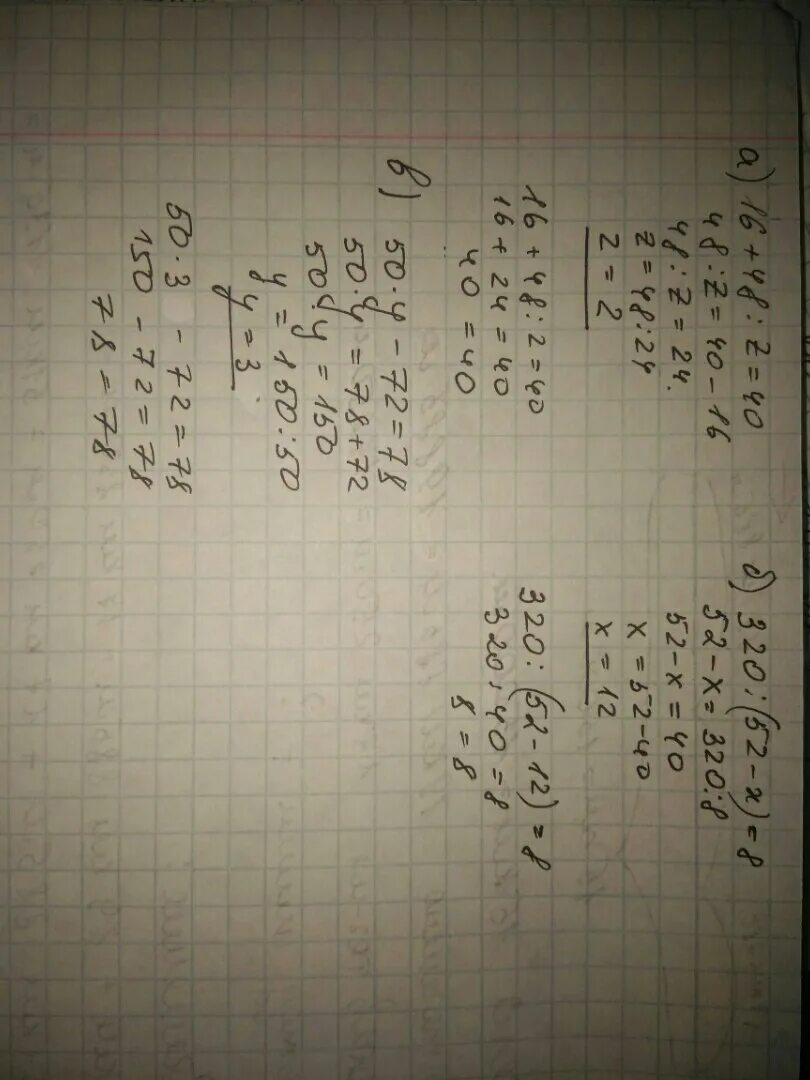 а) 16 + 48 : z = 40
48 : z = 40 - 16
48 : z = 24.
z = 48 : 24
z = 2
16 + 48 : 2 = 40
16 + 24 = 40
40 = 40
б) 320 : (52 - x) = 8
52 - x = 320 : 8
52 - x = 40
x = 52 - 40
x = 12
320 : (52 - 12) = 8
320 : 40 = 8
8 = 8
в) 50 · y - 72 = 78
50 · y = 78 + 72
50 · y = 150
y = 150 : 50
y = 3
50 · 3 - 72 = 78
150 - 72 = 78
78 = 78